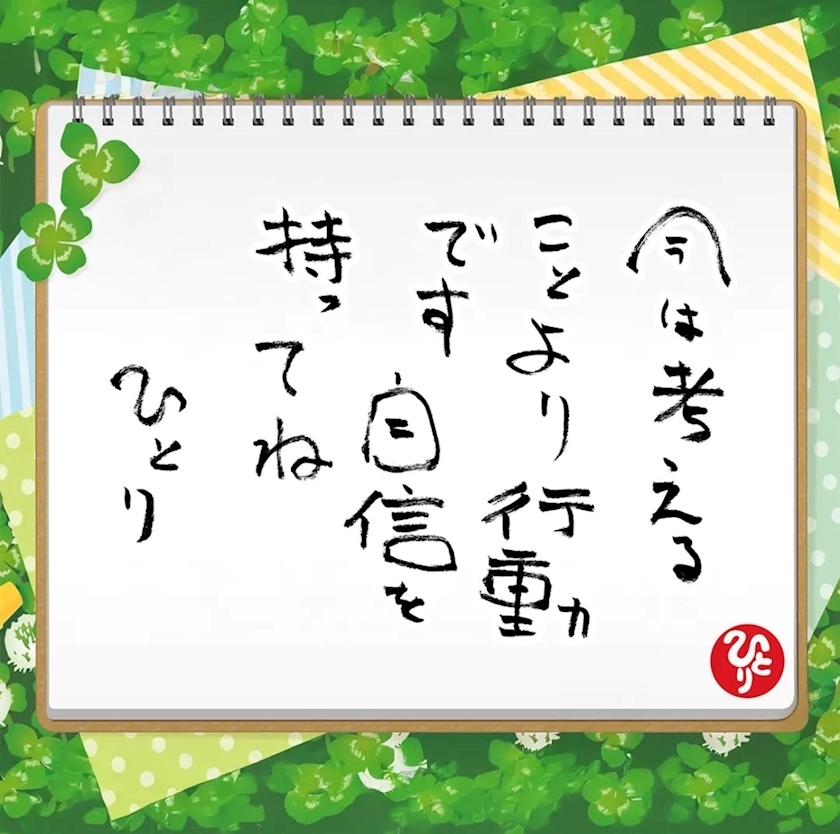 今は考える
ことより行動
です自信を
持ってね
ひとり
ひとり